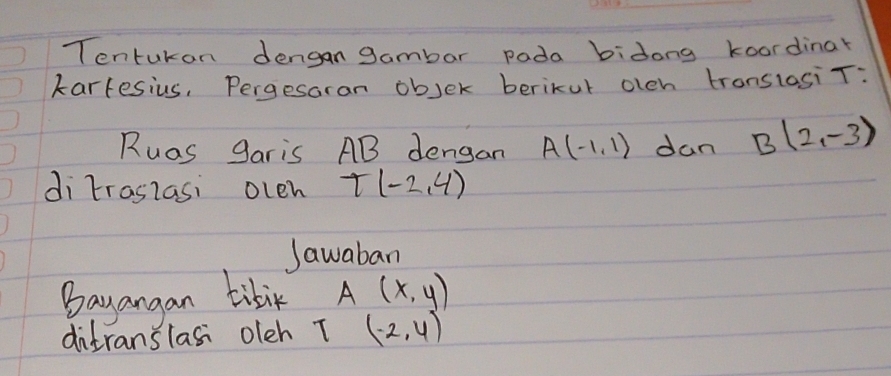 Tentukan dengan gambar pada bidang koordinat
kartesius, Pergesaran objek berikut oleh translasi T:
Ruas garis AB dengan A(-1,1) dan B(2,-3)
di traslasi oleh T(-2,4)
Jawaban
Bayangan titik A (x,y)
ditranslasi oleh T (-2,4)